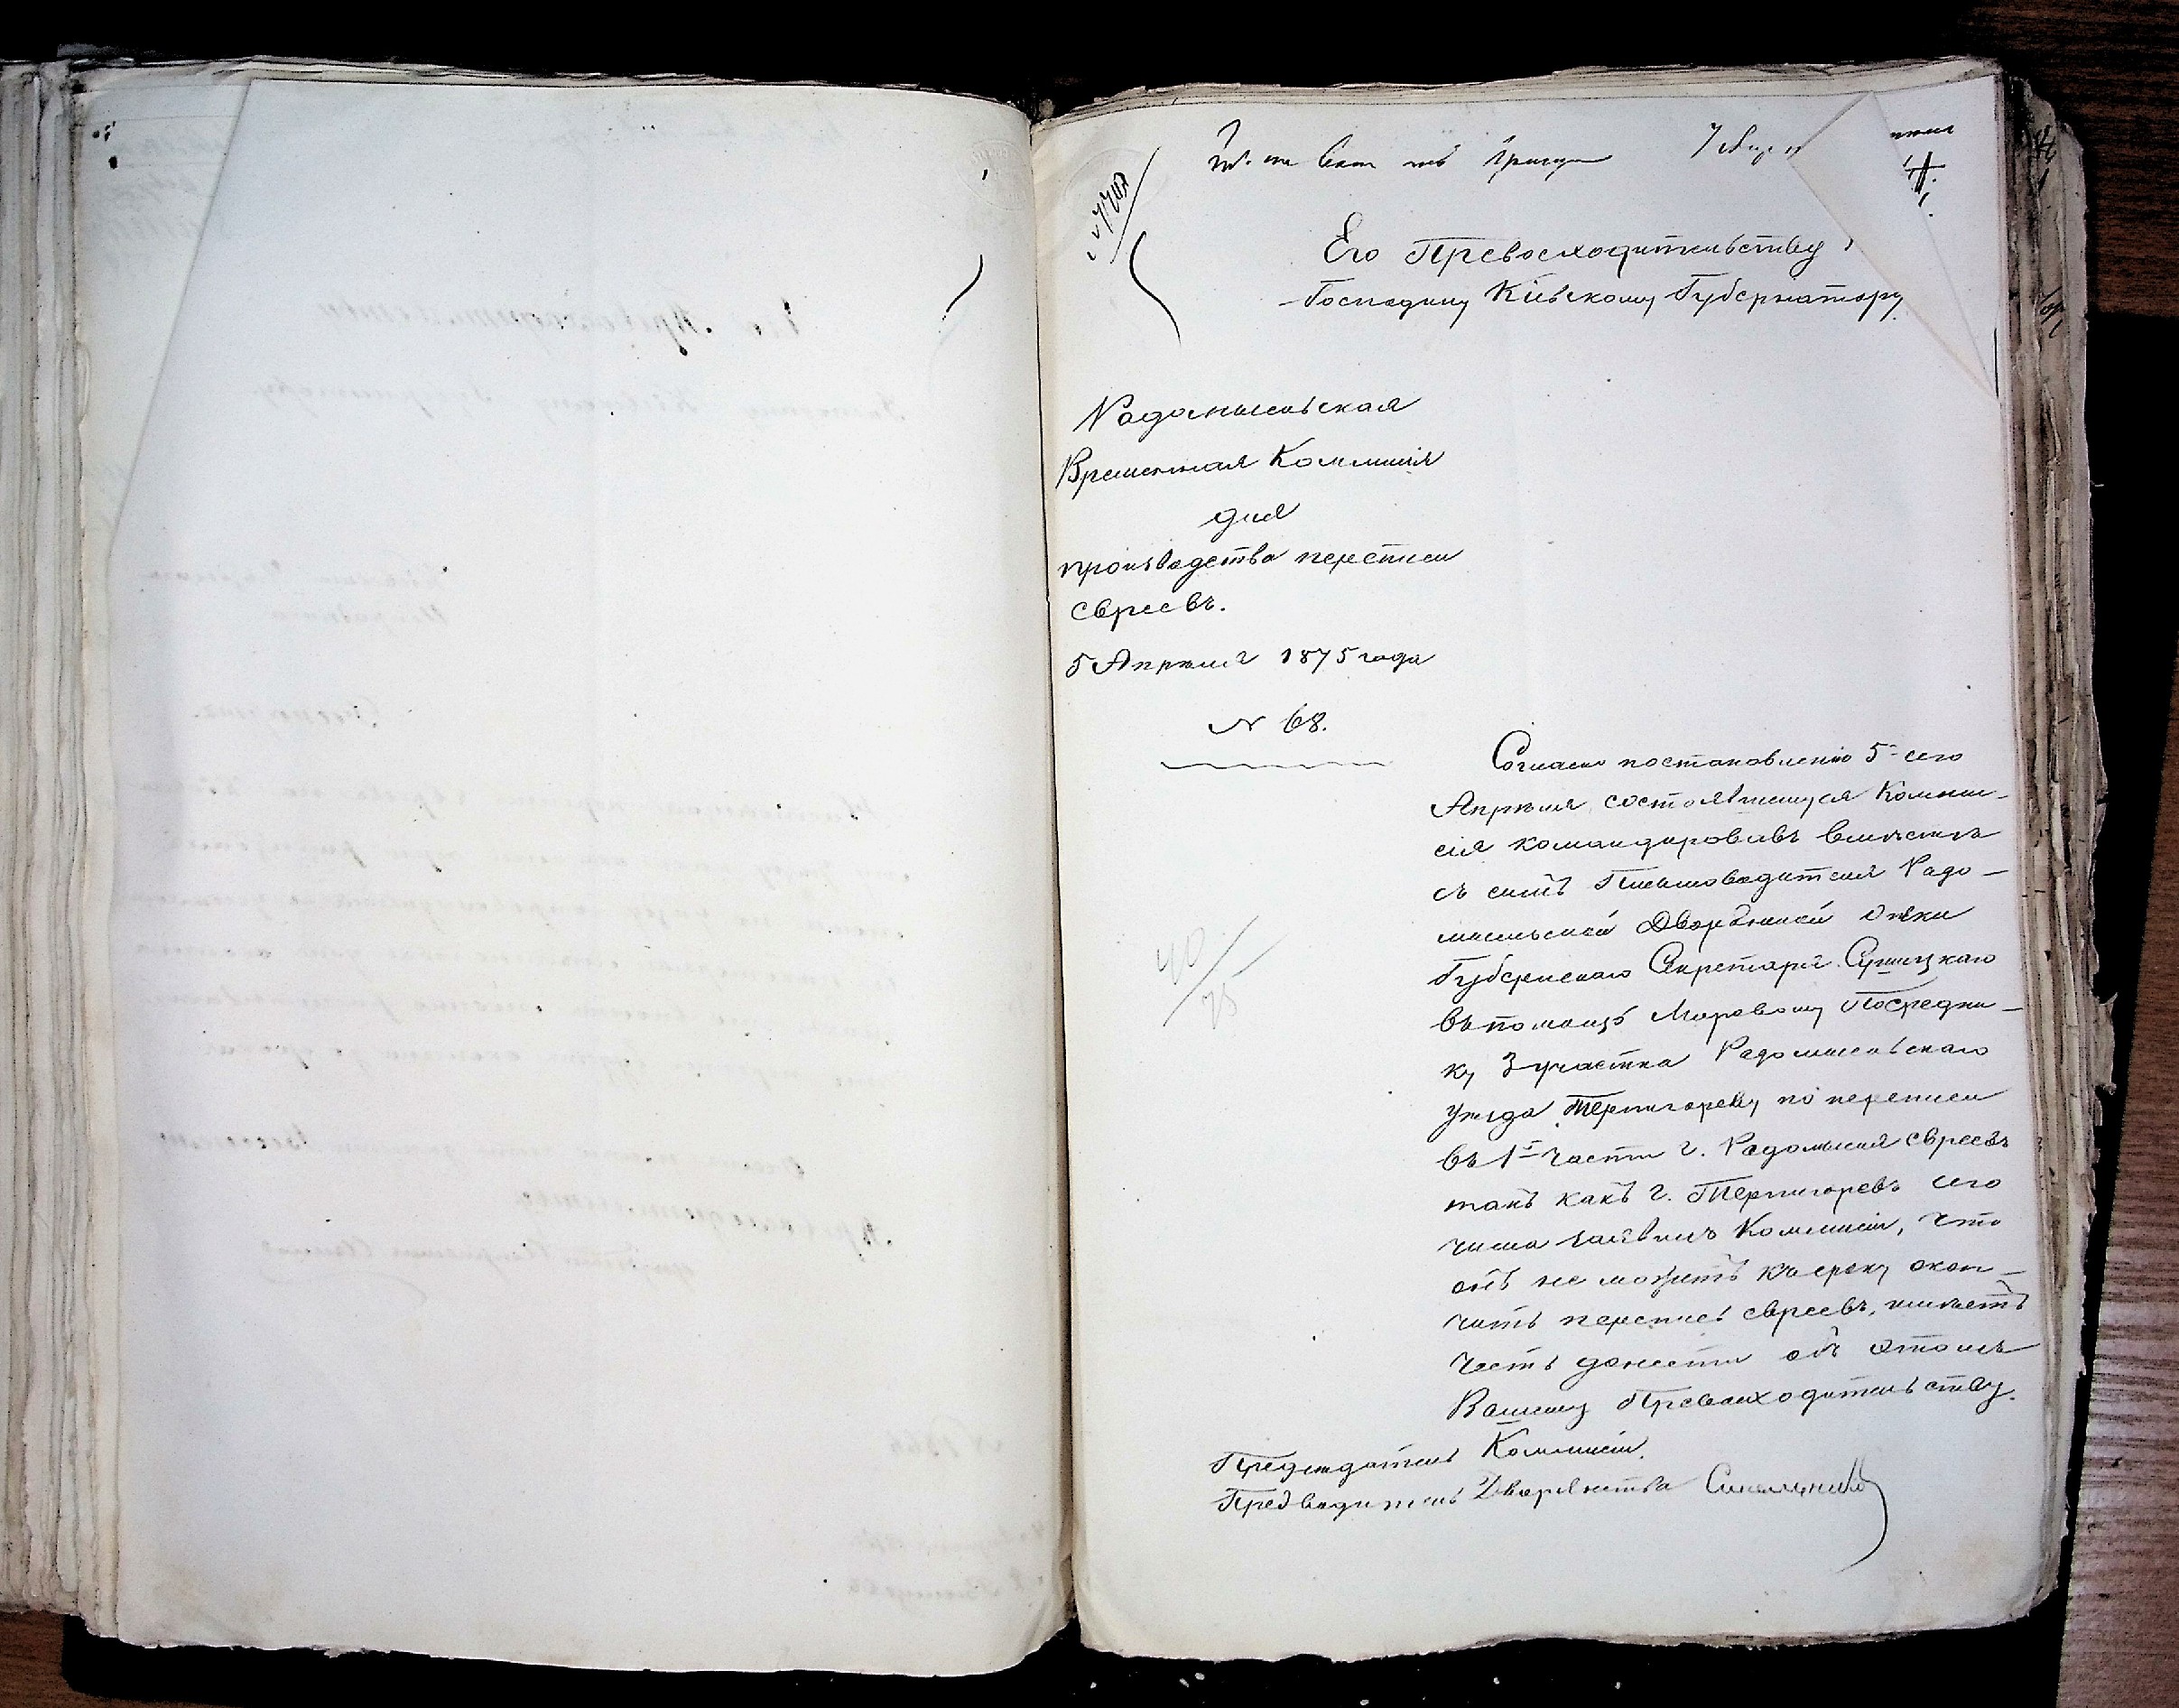 Его Превосходительству
Господину Кіевскому Губернатору
Радомысльская
Временная Коммисія
для
производства переписи
евреевъ.
5 Апрѣля 1875 года
N 68.
Согласно постановленію 5 сего
Апрѣля, состоявшемуся Комми-
сія командировавъ вмѣстѣ
съ симъ Письмоводителя Радо-
мысльской Дворянской Опеки
Губернскаго Секретаря Сушицкаго
въ помощь Мировому Посредни-
ку 3 участка Радомысльскаго
уѣзда Терпигореву по переписи
въ 1й части г. Радомысля евреевъ
такъ какъ г. Терпигоревъ сего
числа заявилъ Коммисіи, что
онъ не можетъ къ сроку окон-
чить перепись евреевъ, имѣетъ
честь донести объ этомъ
Вашему Превосходительству.
Предсѣдатель Коммисіи,
Предводитель Дворянства
40/75